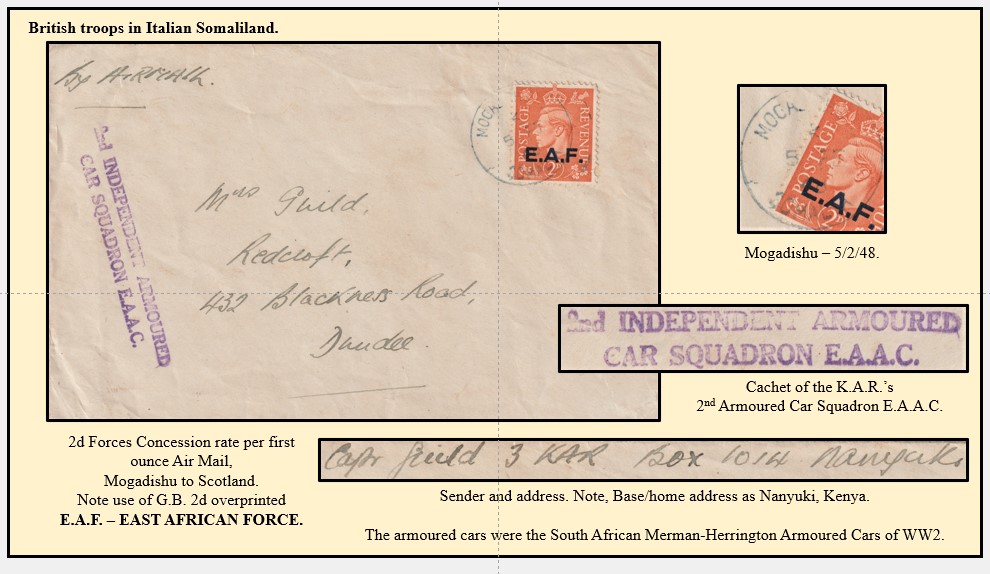 British troops in Italian Somaliland.
By AIRMAIL.
MOGA
5
POSTAGE
REVENUE
E.A.F.
2D
2nd INDEPENDENT ARMOURED
CAR SQUADRON E.A.A.C.
Mrs Guild,
Redcroft,
432 Blackness Road,
Dundee.
MOGA
5
POSTAGE
E.A.F.
2D
Mogadishu – 5/2/48.
2nd INDEPENDENT ARMOURED
CAR SQUADRON E.A.A.C.
Cachet of the K.A.R.'s
2nd Armoured Car Squadron E.A.A.C.
2d Forces Concession rate per first
ounce Air Mail,
Mogadishu to Scotland.
Note use of G.B. 2d overprinted
E.A.F. – EAST AFRICAN FORCE.
Capt Guild 3 KAR Box 1014 Nanyuki
Sender and address. Note, Base/home address as Nanyuki, Kenya.
The armoured cars were the South African Merman-Herrington Armoured Cars of WW2.